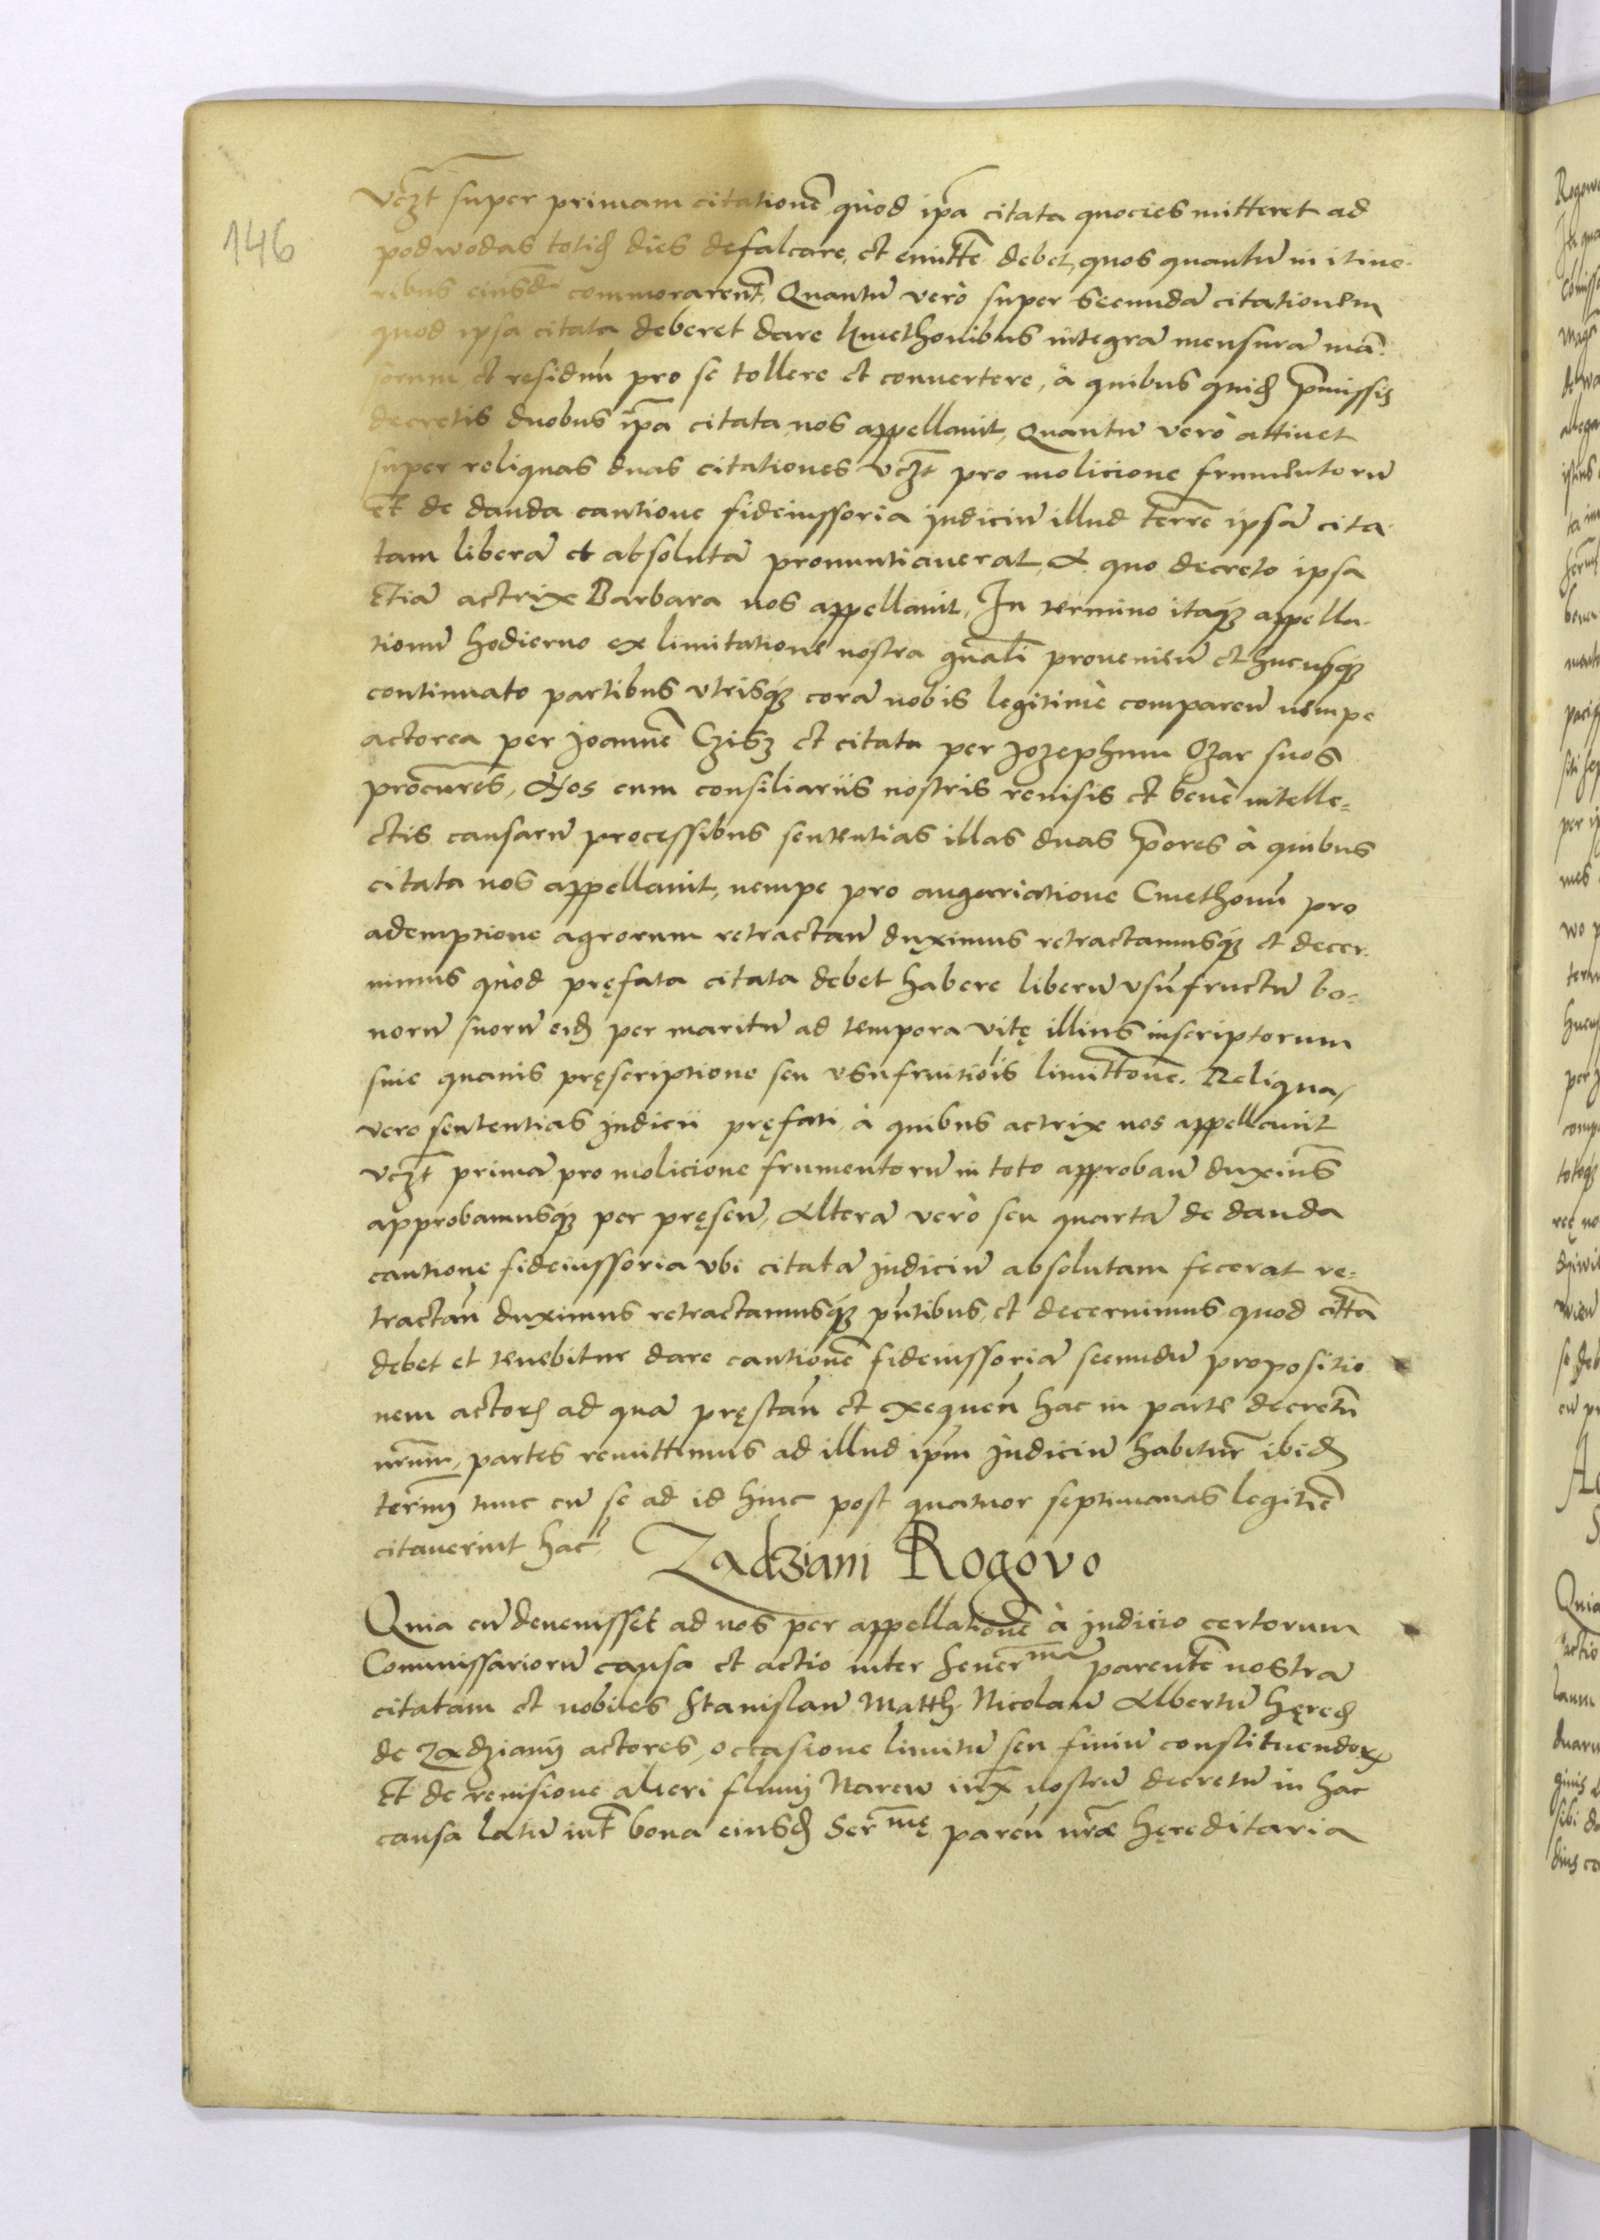 146
vczt super primam citationẽ quòd ip̃a citata quocies mitteret ad
podwodas totiḋ dies defalcare, et emitt̃e debet, quos quantũ in itine-
ribus eiusd̃ commorarent̃, Quantũ verò super secundã citationem
quod ipsa citata deberet dare kmethonibus integrã mensurã mã-
sorum et residuũ pro se tollere et conuertere, à quibus quid̃ p̃missis
decretis duobus ip̃a citata nos appellauit, Quantũ verò attinet
super reliquas duas citationes vczt pro molicione frumentorũ
et de danda cautione fideiussoria judiciũ illud terr̃e ipsã cita-
tam liberã et absolutã pronuntiauerat, A quo decreto ipsa
etiã actrix Barbara nos appellauit, In termino itaq3 appella-
tionũ hodierno ex limitatione nostra gñali proueniẽ et hucusq3
continuato partibus vtrisq3 corã nobis legitimè comparẽ nempe
actorea per Joannẽ Czisz et citata per Jozephum Ozar suos
procur̃es, Nos cum consiliariis nostris reuisis et benè intelle-
ctis causarũ processibus sententias illas duas p̃ores à quibus
citata nos appellauit, nempe pro angariatione Cmethonũ pro
ademptione agrorum retractañ duximus retractamusq3 et decer-
nimus quòd pręfata citata debet habere liberũ vsũfructũ bo-
norũ suorũ eid̃ per maritũ ad tempora vitę illius inscriptorum
sine quauis pręscriptione seu vsufruitiõis limitt̃one. Reliquas
vero sententias judicii pręfati, à quibus actrix nos appellauit
vczt primã pro molicione frumentorũ in toto approbañ duxim̃s
approbamusq3 per pręsen̄, Alterã verò seu quartã de danda
cautione fideiussoria vbi citatã judiciũ absolutam fecerat re-
tractañ duximus retractamusq3 pñtibus, et decernimus quod citt̃a
debet et tenebitur dare cautionẽ fideiussoriã secundũ propositio
nem actor̃ ad quã pręstañ et exequeñ hac in parte decretũ
nr̃um, partes remittimus ad illud ip̃m judiciũ habitur̃ ibid̃
termi͂ tunc cũ se ad id hinc post quatuor septimanas legitim̃e
citauerint hac̃.
Zadziani Rogovo
Quia cũ deuenisset ad nos per appellationẽ à judicio certorum
Commissariorũ causa et actio inter Seren̄mã parent̃e nostrã
citatam et nobiles Stanislaũ Matth̃ Nicolaũ Albertũ hęred̃
de Zadzianij actores, occasione limitũ seu finiũ constituendor̃
Et de reuisione aluei flumi͂ Narew iux̃ nostrũ decretũ in hac
causa latũ int̃ bona eiusd̃ Ser̃mę pareñ nr̃æ hęreditaria